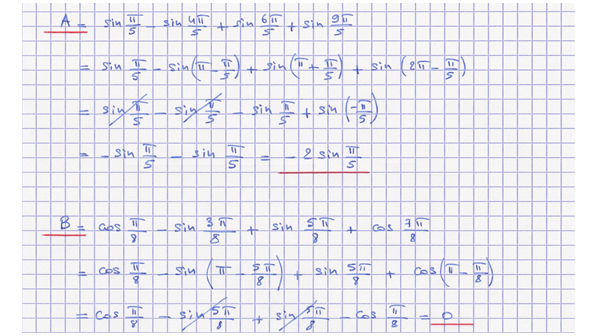 A = sin π/5 - sin 4π/5 + sin 6π/5 + sin 9π/5
= sin π/5 - sin(π - π/5) + sin(π + π/5) + sin (2π - π/5)
= sin π/5 - sin π/5 - sin π/5 + sin (-π/5)
= - sin π/5 - sin π/5 = - 2 sin π/5
B = cos π/8 - sin 3π/8 + sin 5π/8 + cos 7π/8
= cos π/8 - sin (π - 5π/8) + sin 5π/8 + cos(π - π/8)
= cos π/8 - sin 5π/8 + sin 5π/8 - cos π/8 = 0